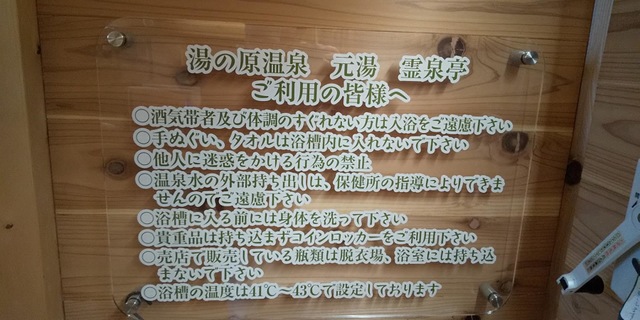 湯の原温泉　元湯　霊泉亭
ご利用の皆様へ
○酒気帯者及び体調のすぐれない方は入浴をご遠慮下さい
○手ぬぐい、タオルは浴槽内に入れないで下さい
○他人に迷惑をかける行為の禁止
○温泉水の外部持ち出しは、保健所の指導によりできま
せんのでご遠慮下さい
○浴槽に入る前には身体を洗って下さい
○貴重品は持ち込まずコインロッカーをご利用下さい
○売店で販売している瓶類は脱衣場、浴室には持ち込
まないで下さい
○浴槽の温度は41℃〜43℃で設定しております